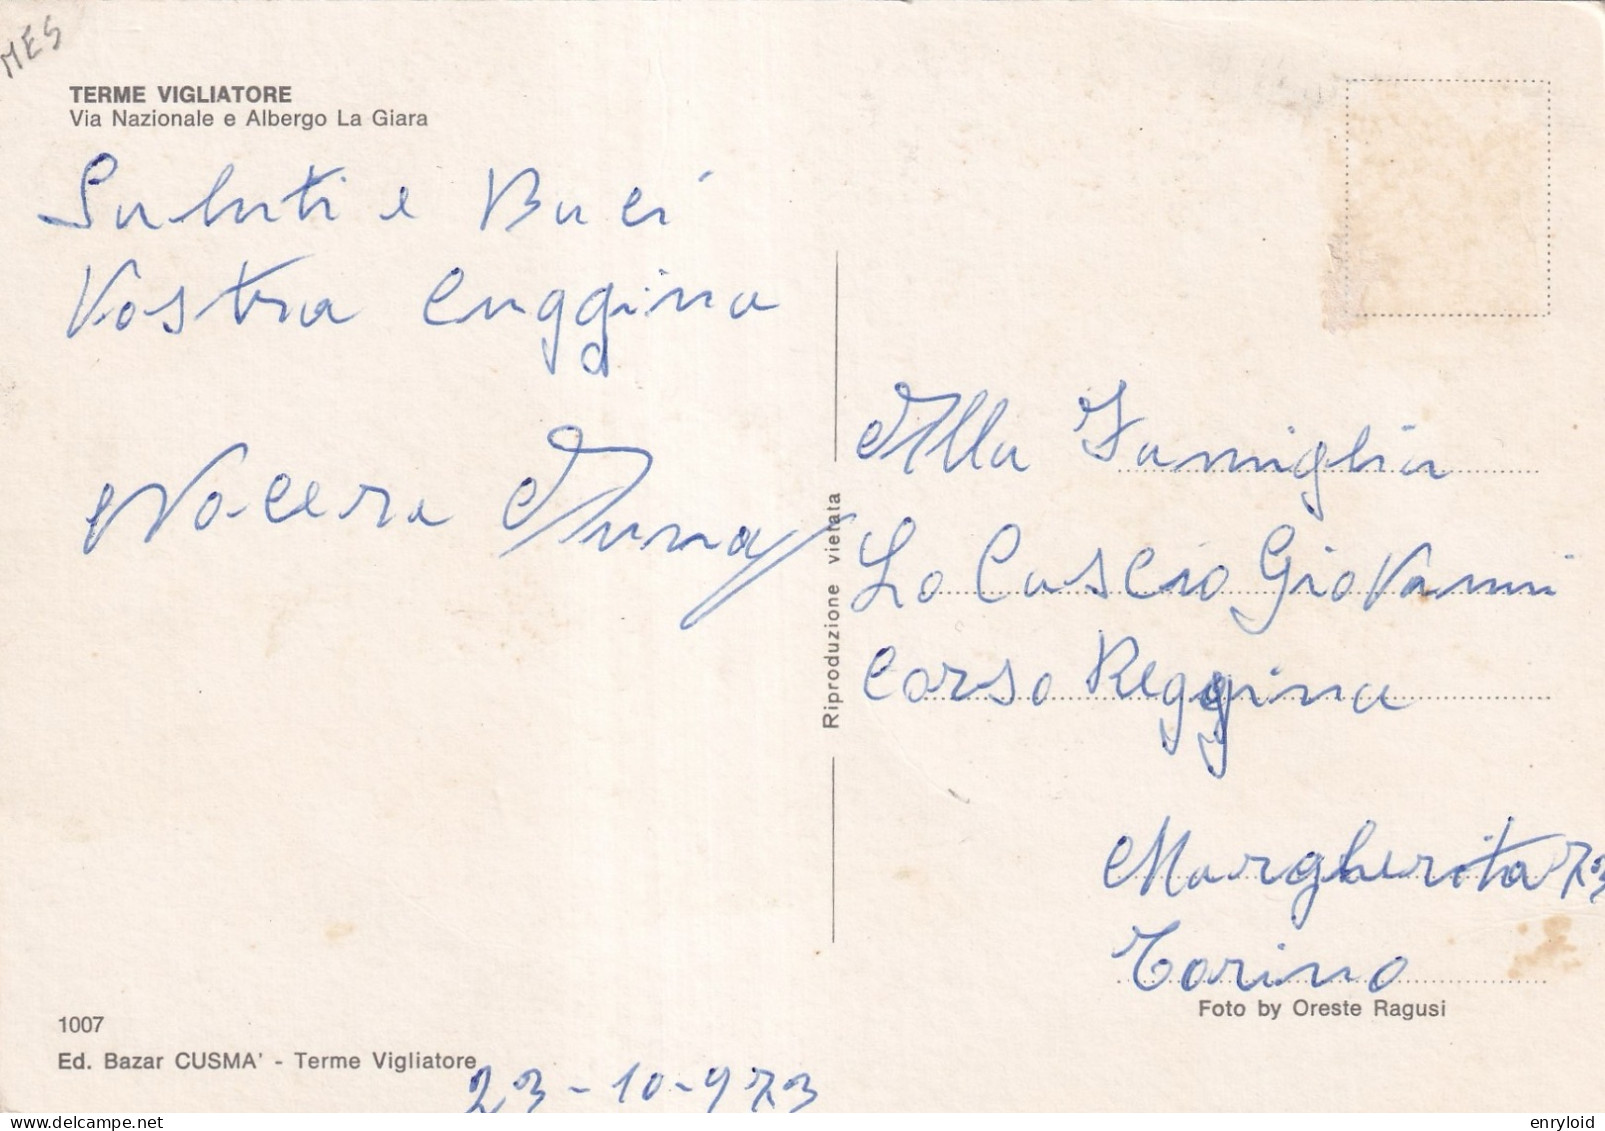 MES
TERME VIGLIATORE
Via Nazionale e Albergo La Giara
Saluti e Baci
Vostra Cuggina
Nocera Anna
Alla Famiglia
Lo Cascio Giovanni
Corso Reggina
Margherita 73
Torino
Riproduzione vietata
Foto by Oreste Ragusi
1007
Ed. Bazar CUSMA' - Terme Vigliatore
23-10-973
enryloid